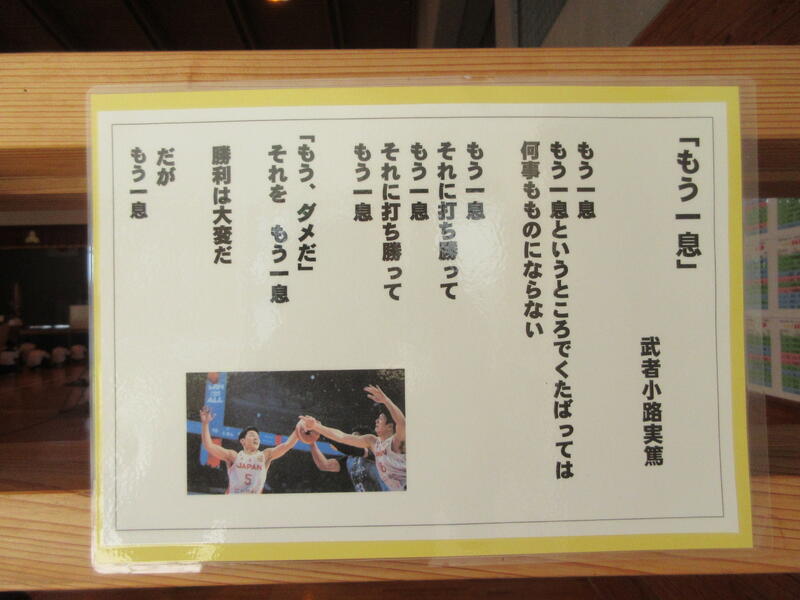 「もう一息」
武者小路実篤
もう一息
もう一息というところでくたばっては
何事もものにならない
もう一息
それに打ち勝って
もう一息
それに打ち勝って
もう一息
「もう、ダメだ」
それを　もう一息
勝利は大変だ
だが
もう一息
JAPAN
5